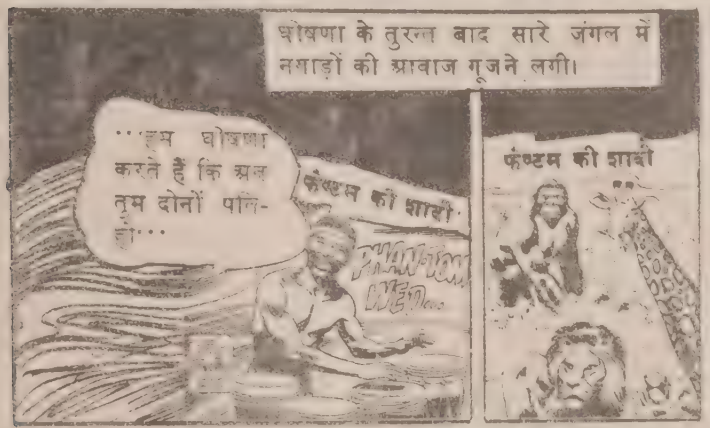 घोषणा के तुरन्त बाद सारे जंगल में
नगाड़ों की आवाज गूजने लगी।
...हम घोषणा
करते हैं कि अब
तुम दोनों पति-
हो...
फॅण्टम की शादी
PHAN-TOM
WED...
फॅण्टम की शादी